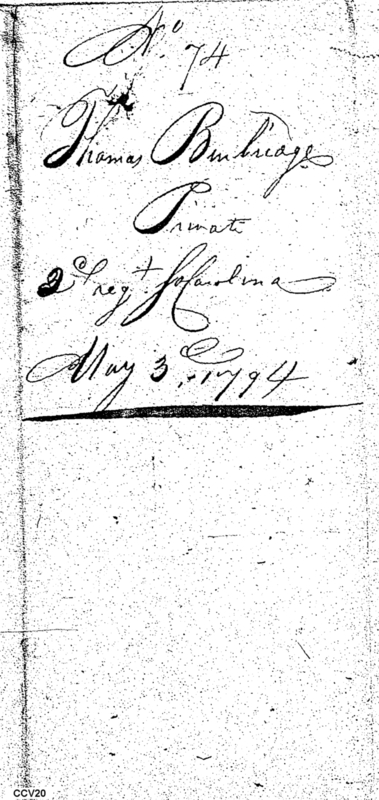 No. 74
Thomas Bembridge
Private
2d regt. So Carolina
May 3d, 1794
CCV20